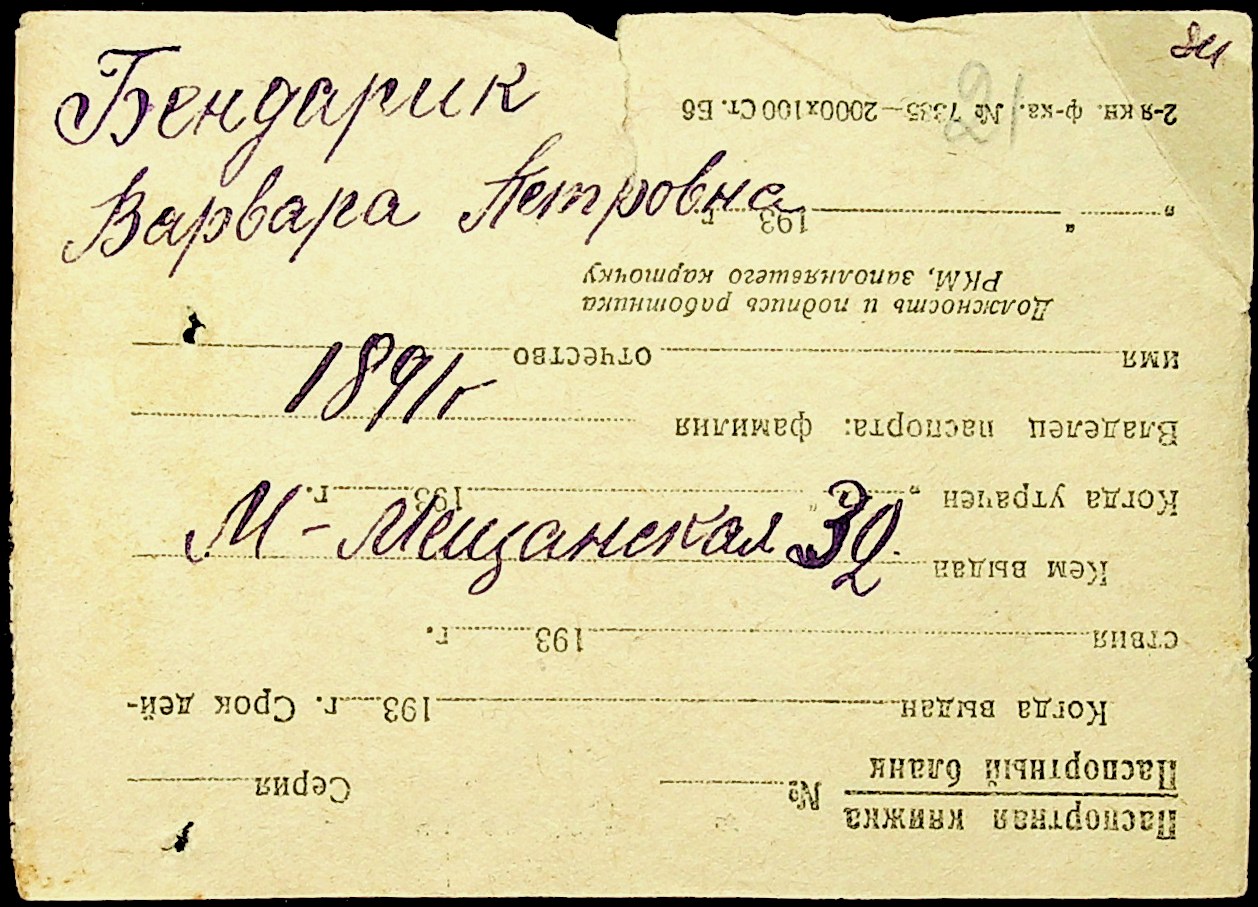 Бендарик
Варвара Петровна
1891 г
М-Мещанская 32
21
Паспортная книжка
Паспортный бланк
№ Серия
Когда выдан 193 г. Срок дей-
ствия 193 г.
Кем выдан
Когда утрачен „ “ 193 г.
Владелец паспорта: фамилия
имя отчество
Должность и подпись работника
РКМ, заполнявшего карточку
„ “ 193 г.
2-я кн. ф-ка. № 7335—2000х100 Ст. Бб